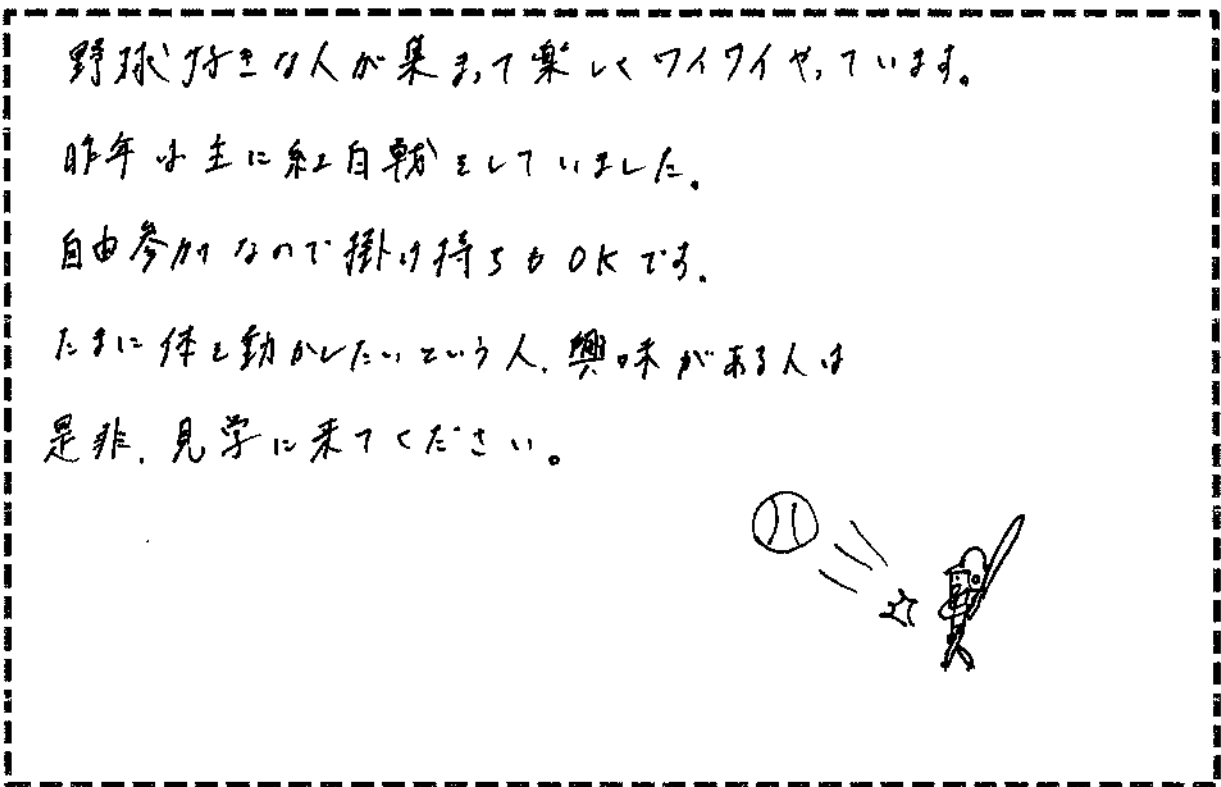 野球好きな人が集まって楽しくワイワイやっています。
昨年は主に紅白戦をしていました。
自由参加なので掛け持ちもOKです。
たまに体を動かしたいという人、興味がある人は
是非、見学に来てください。